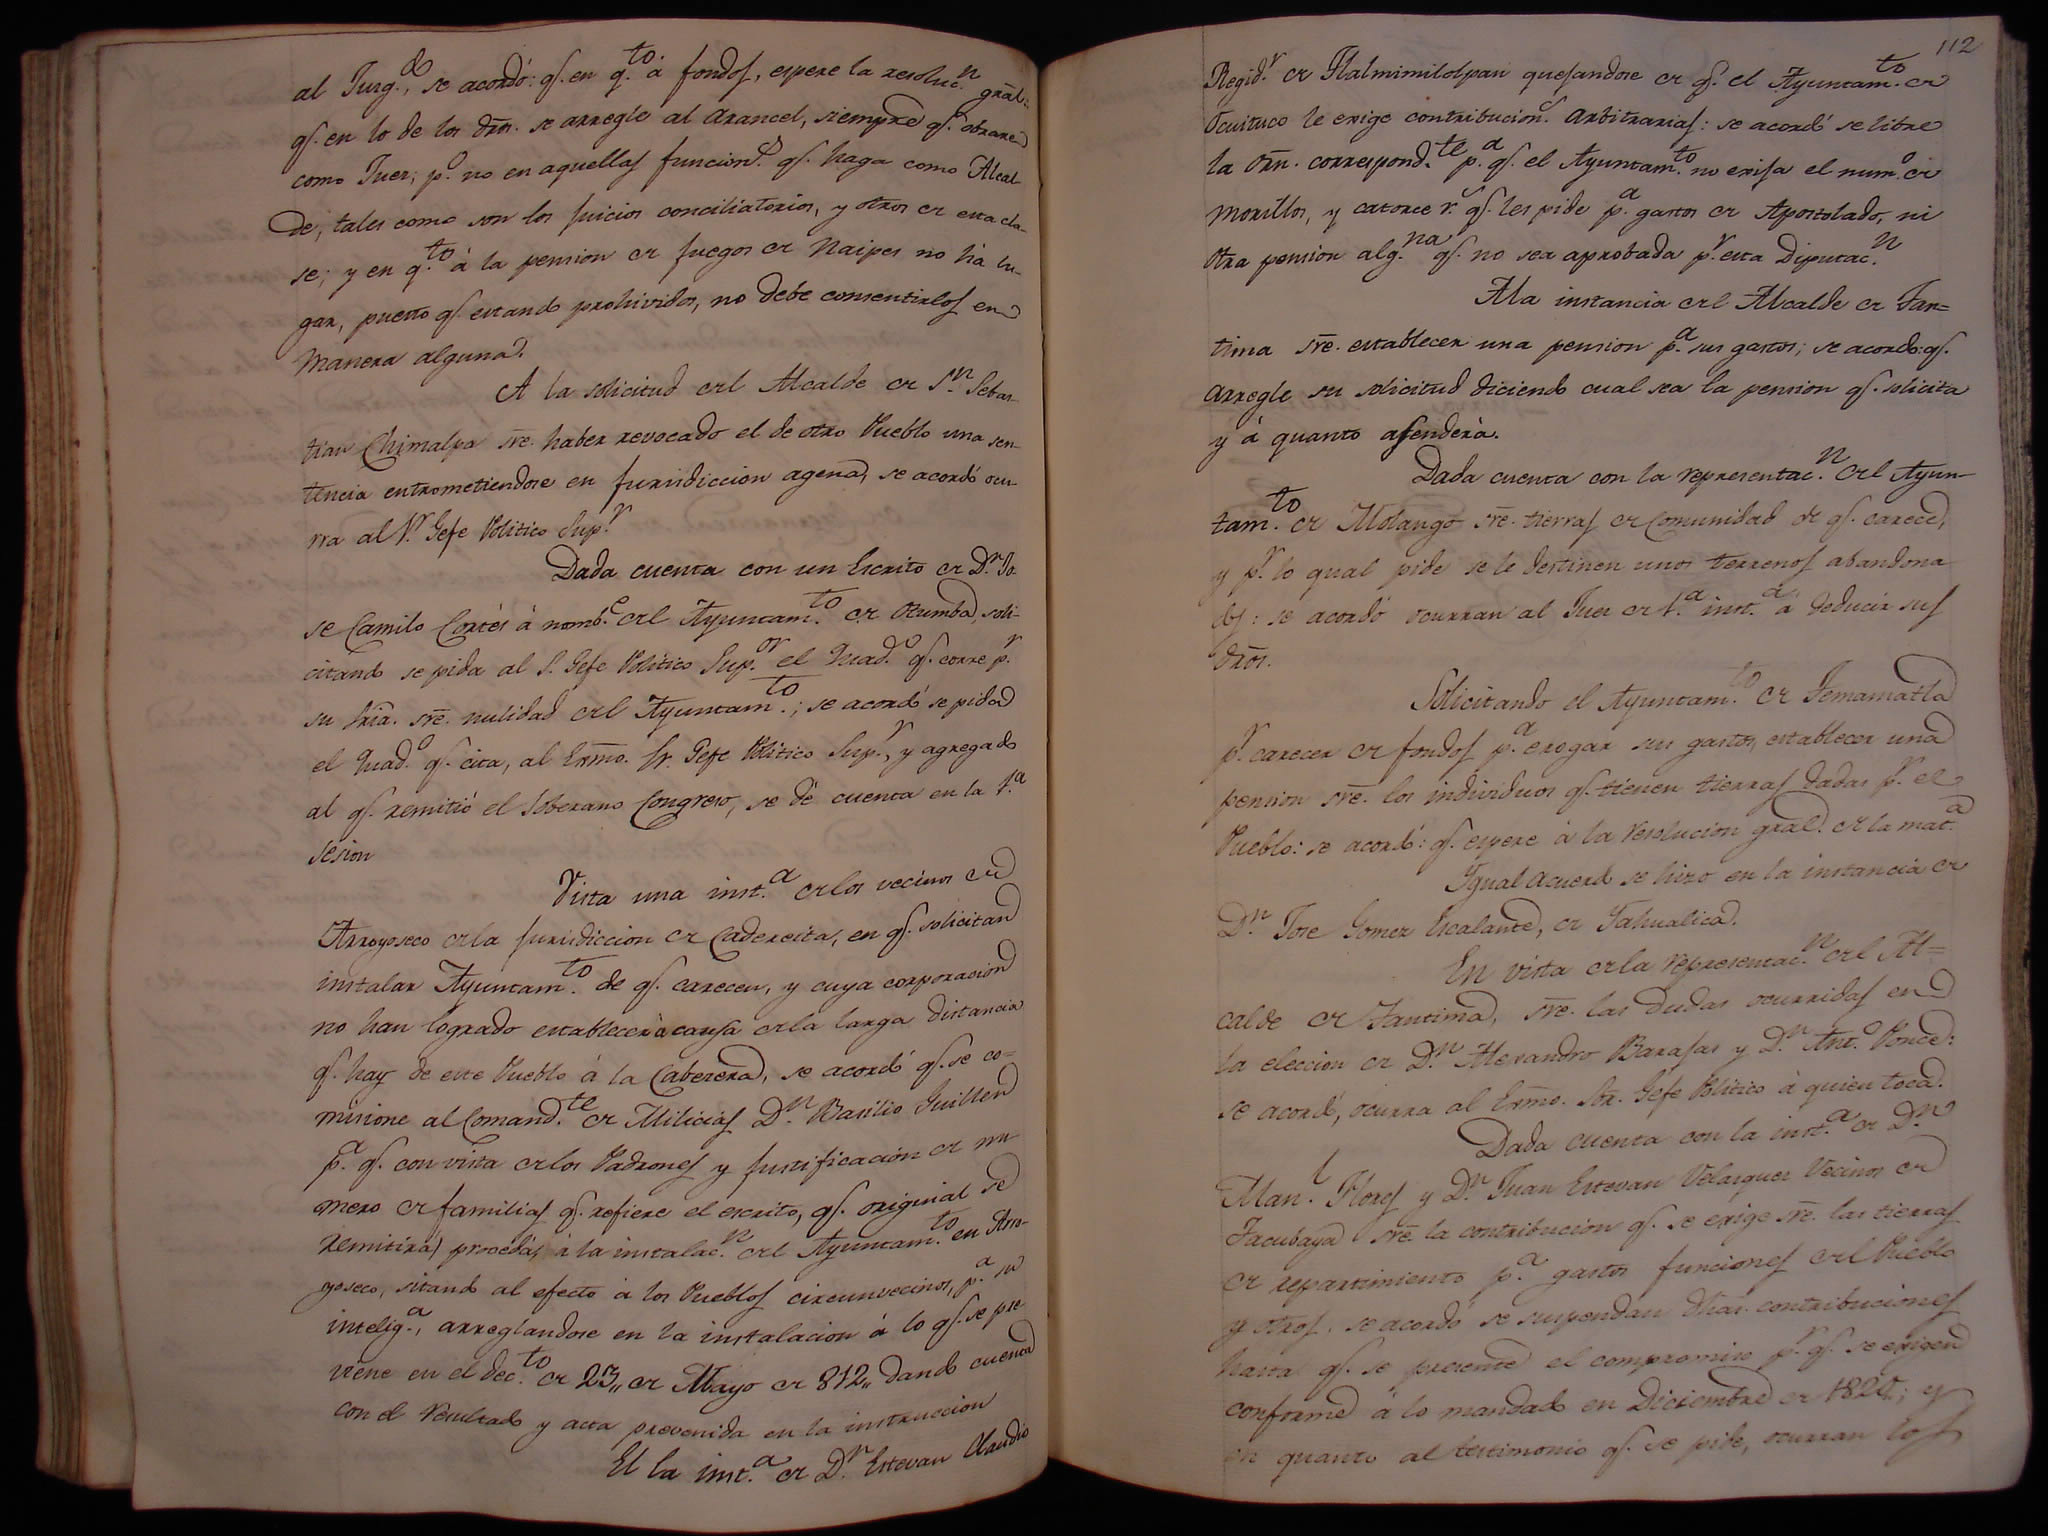 al Juzg.do, se acordó: q.e en q.to á fondos, espere la resoluc.n gral:
q.e en lo de los dros. se arregle al Arancel, siempre q.e obrare
como Juez; p.o no en aquellas funcion.s q.e haga como Alcal-
de, tales como son los juicios conciliatorios, y otros de esta cla-
se; y en q.to á la pension de juegos de Naipes no há lu-
gar, puesto q.e estando prohividos, no debe consentirlos en
manera alguna.
A la solicitud del Alcalde de S.n Sebas-
tian Chimalpa sre. haber revocado el de otro Pueblo una sen-
tencia entrometiendose en jurisdiccion agena, se acordó ocu-
rra al S.r Gefe Politico Sup.r
Dada cuenta con un Escrito de D.n Jo-
se Camilo Cortés á nomb.e del Ayuntam.to de Otumba, soli-
citando se pida al S. Gefe Politico Sup.or el Quad.o q.e corre p.r
su Sria. sre. nulidad del Ayuntam.to; se acordó se pida
el Quad.o q.e cita, al Exmo. Sr. Gefe Politico Sup.r, y agregado
al q.e remitió el Soberano Congreso, se dé cuenta en la 1.a
sesion
Vista una inst.a de los vecinos de
Arroyoseco de la jurisdiccion de Cadereita, en q.e solicitan
instalar Ayuntam.to de q.e carecen, y cuya corporacion
no han logrado establecer á causa de la larga distancia
q.e hay de este Pueblo á la Cabezera, se acordó q.e se co-
misione al Comand.te de Milicias D.n Basilio Guillen
p.a q.e con vista de los Padrones y justificación de nu-
mero de familias q.e refiere el escrito, q.e original se
remitirá, proceda á la instalac.n del Ayuntam.to en Arro-
yoseco, sitando al efecto á los Pueblos circunvecinos, p.a su
intelig.a, arreglandose en la instalacion á lo q.e se pre
viene en el dec.to de 23,, de Mayo de 812,, dando cuenta
con el resultado y acta prevenida en la instruccion
El la inst.a de D.n Estevan Claudio
112
Regid.r de Tlalmimilolpan quejandose de q.e el Ayuntam.to de
Ocuituco le exige contribucion.s arbitrarias: se acordó se libre
la orn. correspond.te p.a q.e el Ayuntam.to no exija el num.o de
morillos, y catorce r.s q.e les pide p.a gastos de Apostolado, ni
otra pension alg.na q.e no sea aprobada p.r esta Diputac.n
A la instancia del Alcalde de Tan-
tima sre. establecer una pension p.a sus gastos; se acordó: q.e
arregle su solicitud diciendo cual sea la pension q.e solicita
y á quanto asenderá.
Dada cuenta con la representac.n del Ayun-
tam.to de Molango sre. tierras de Comunidad de q.e carece,
y p.r lo qual pide se le destinen unos terrenos abandona
dos: se acordó ocurran al Juez de 1.a inst.a á deducir sus
dros.
Solicitando el Ayuntam.to de Temamatla
p.r carecer de fondos p.a erogar sus gastos, establecer una
pension sre. los individuos q.e tienen tierras dadas p.r el
Pueblo: se acordó: q.e espere á la resolucion gral. de la mat.a
Igual acuerd se hizo en la instancia de
D.n Jose Gomez Escalante, de Yahualica.
En vista de la representac.n del Al=
calde de Tantima, sre. las dudas ocurridas en
la eleccion de D.n Alexandro Barajas y D.n Ant.o Ponce:
se acordó, ocurra al Exmo. Sor. Gefe Politico á quien toca.
Dada cuenta con la inst.a de D.n
Man.l Flores y D.n Juan Estevan Velasquez Vecinos de
Tacubaya sre. la contribucion q.e se exige sre. las tierras
de repartimiento p.a gastos funciones del Pueblo
y otros, se acordó se suspendan dhas. contribuciones
hasta q.e se presente el compromiso p.r q.e se exigen
conforme á lo mandado en Diciembre de 1820,; y
en quanto al testimonio q.e se pide, ocurran los